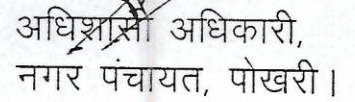 अधिशासी अधिकारी,
नगर पंचायत, पोखरी।